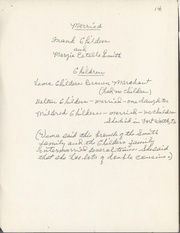 Married
Frank Childers
and
Marzie Estelle Smith
Children
Lewis Childers Brown - Merchant
(had no children)
Delton Childers - married - one daughter
Mildred Childers - married - no children
She died in Fort Worth, Tx
( said this branch of the Smith
family and the Childers family
intermarried several times. She said
that she has lots of double cousins.)